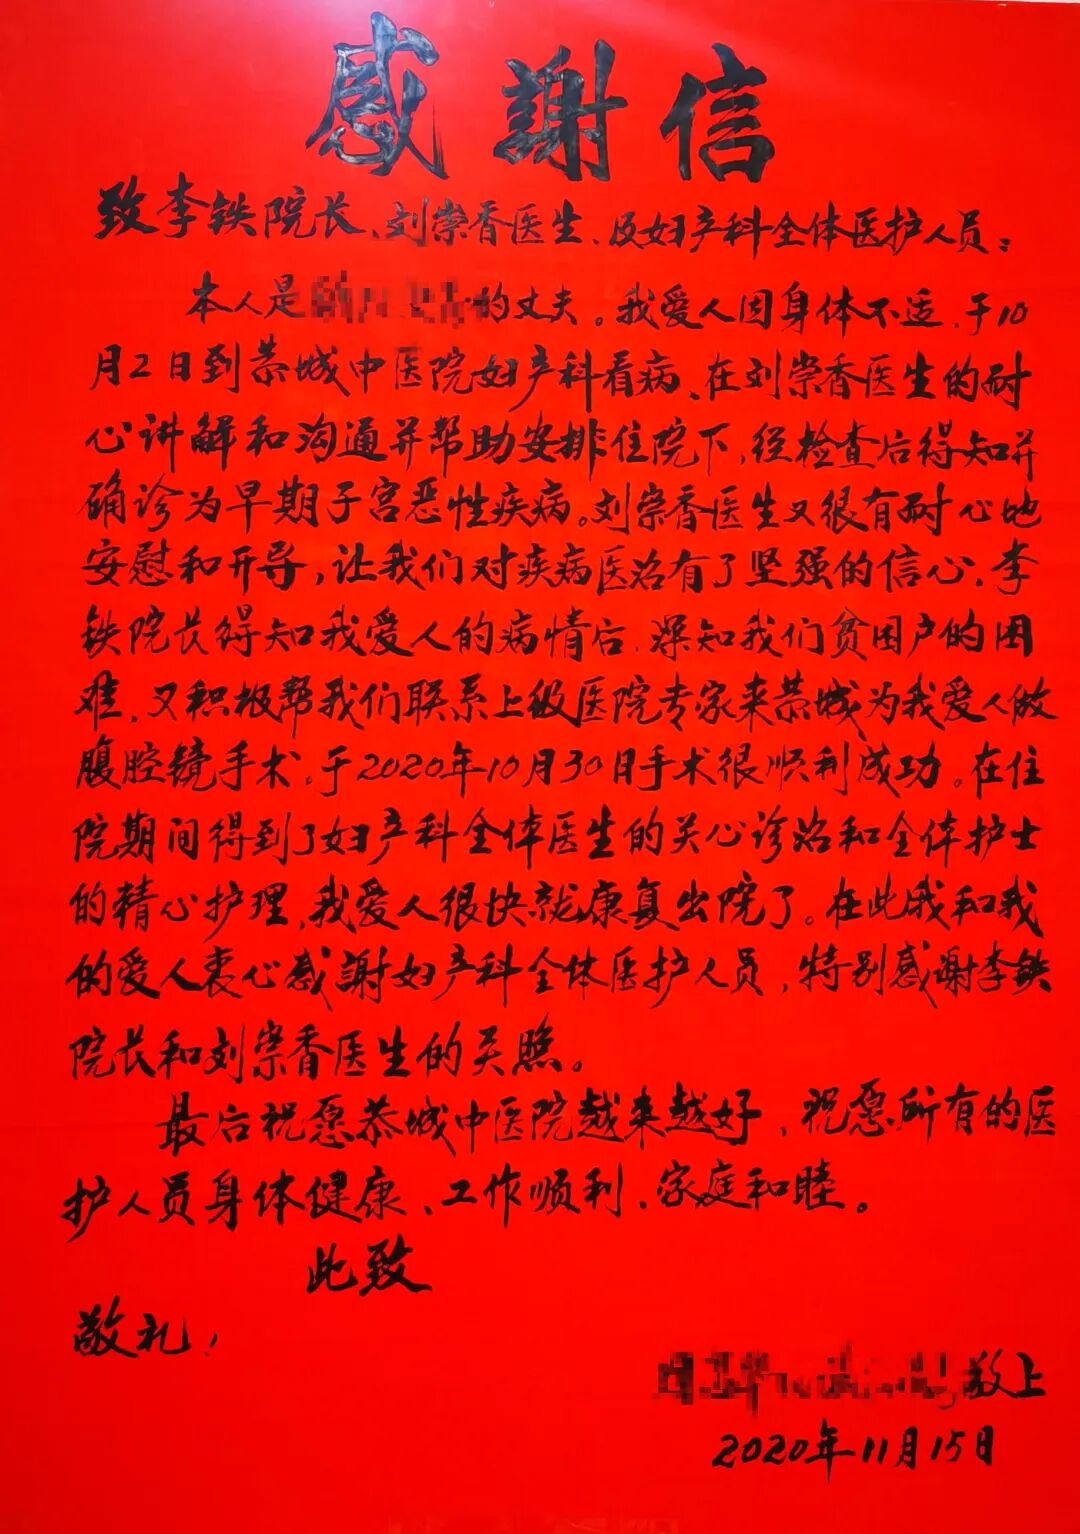 感謝信
致李铁院长、刘崇香医生、及妇产科全体医护人员：
本人是的丈夫。我爱人因身体不适，于10
月2日到恭城中医院妇产科看病、在刘崇香医生的耐
心讲解和沟通并帮助安排住院下，经检查后得知并
确诊为早期子宫恶性疾病。刘崇香医生又很有耐心地
安慰和开导，让我们对疾病医治有了坚强的信心，李
铁院长得知我爱人的病情后，深知我们贫困户的困
难，又积极帮我们联系上级医院专家来恭城为我爱人做
腹腔镜手术，于2020年10月30日手术很顺利成功。在住
院期间得到了妇产科全体医生的关心诊治和全体护士
的精心护理，我爱人很快就康复出院了。在此我和我
的爱人衷心感謝妇产科全体医护人员，特别感谢李铁
院长和刘崇香医生的关照。
最后祝愿恭城中医院越来越好，祝愿所有的医
护人员身体健康、工作顺利、家庭和睦。
此致
敬礼！
敬上
2020年11月15日